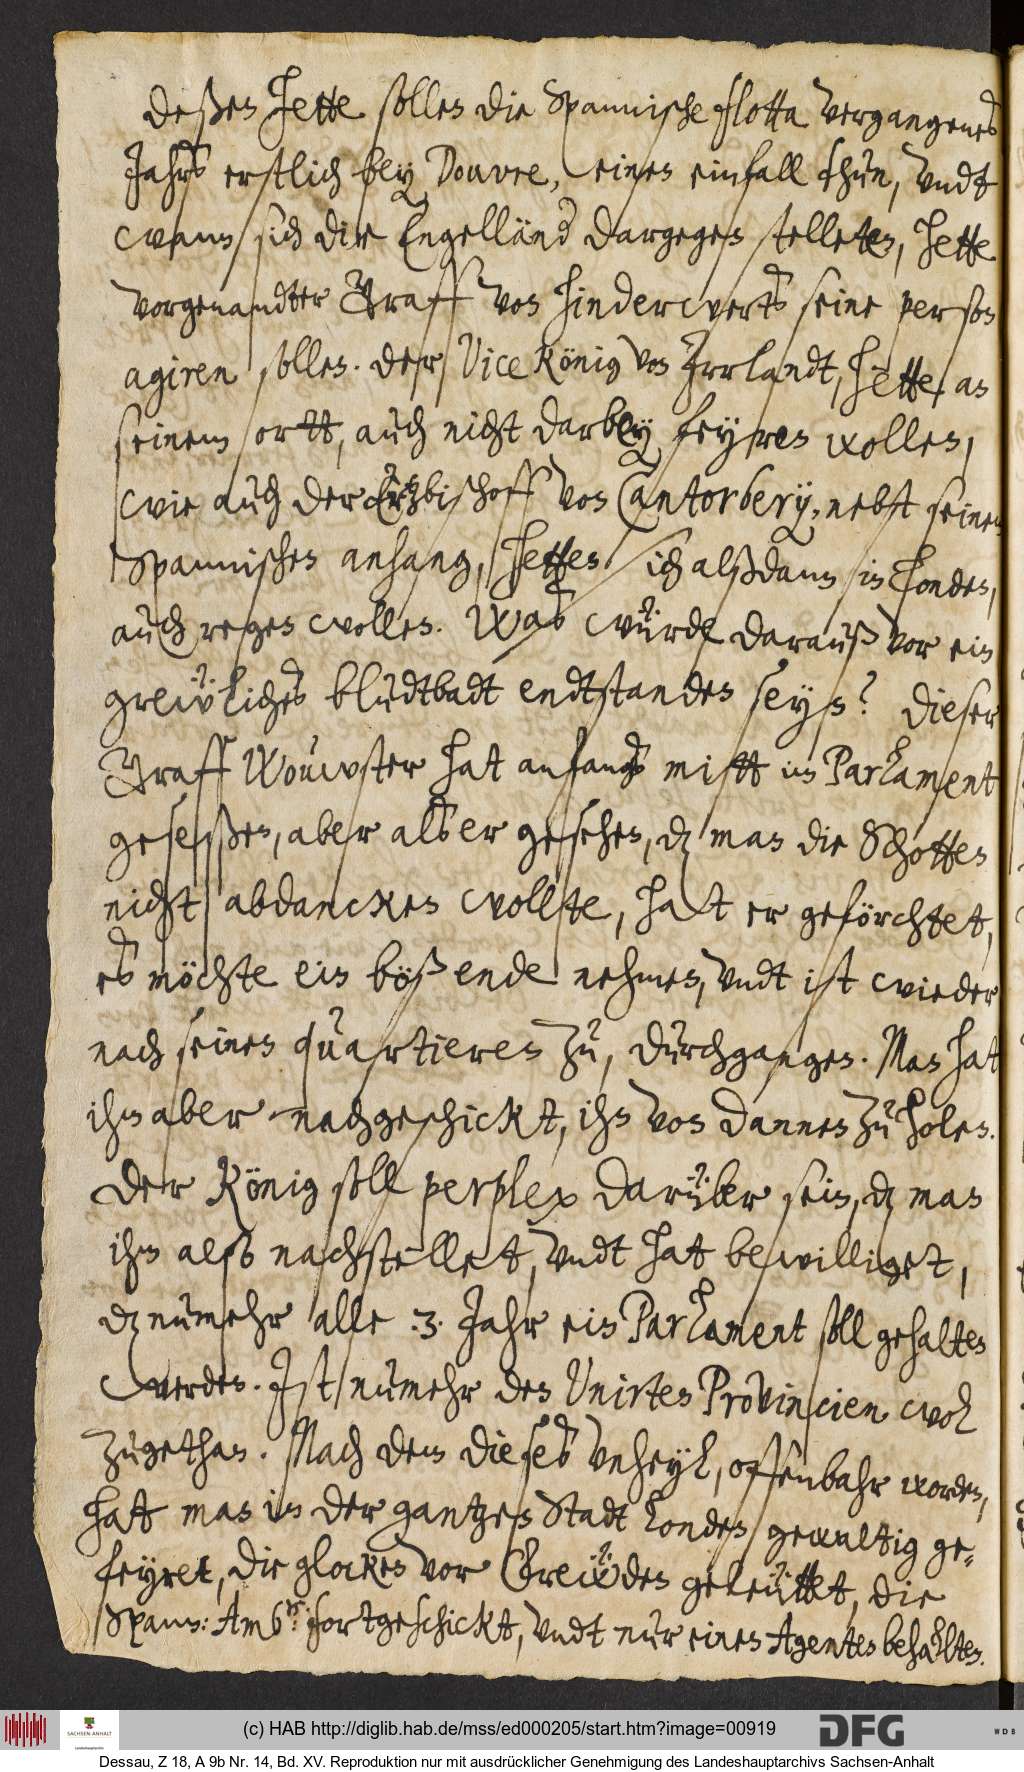 deßen hette sollen die Spannische flotta vergangenes
Jahrs erstlich bey Douvre, einen einfall thun, undt
wann sich die Engelländ dargegen stelleten, hette
vorgenandter Graff von hinderwerts seine person
agiren sollen. der Vice König von Irrlandt, hette, an
seinem ortt, auch nicht darbey feyren wollen,
wie auch der Ertzbischoff von Cantorbery, nebst seinem
Spannischen anhang, hetten sich alßdann in Londen,
auch regen wollen. Was würde darauß vor ein
grewliches bludtbadt endtstanden seyn? Dieser
Graff Wouwster hat anfangs mitt im Parlament
geseßen, aber als er gesehen, dz man die Schotten
nicht abdancken wollte, hatt er geförchtet,
es möchte ein böß ende nehmen, undt ist wieder
nach seinen quartieren zu, durchgangen. Man hat
ihm aber nachgeschickt, ihn von dannen zu holen.
Der König soll perplex darüber sein, dz man
ihm also nachstellet, undt hat bewilliget,
dz numehr alle .3. Jahr ein Parlament soll gehalten
werden. Ist numehr den Unirten Provincien wol
zugethan. Nach dem dieses unheyl, offenbahr worden,
hatt man in der gantzen Stadt Londen gewaltig ge-
feyret, die glocken vor Frewden geleuttet, die
Spann: Ambr: fortgeschickt, undt nur einen Agenten behallten.
(c) HAB http://diglib.hab.de/mss/ed000205/start.htm?image=00919
SACHSEN-ANHALT
Landeshauptarchiv
DFG
WDB
Dessau, Z 18, A 9b Nr. 14, Bd. XV. Reproduktion nur mit ausdrücklicher Genehmigung des Landeshauptarchivs Sachsen-Anhalt